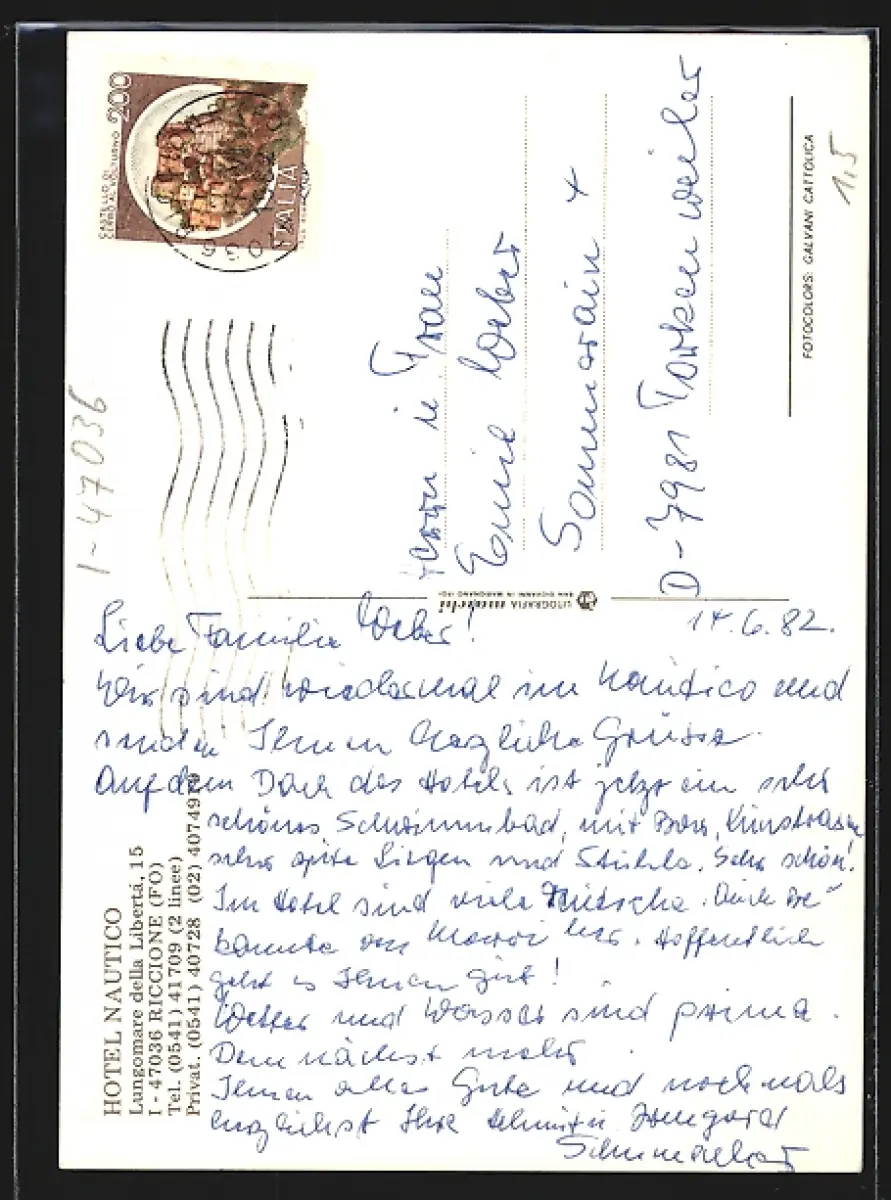 CASTELLO DI
CERRO AL VOLTURNO
200
ITALIA
I-47036
Herrn u. Frau
Emil Weber
D-7981 Torkenweiler
FOTOCOLORS: GALVANI CATTOLICA
1,5
LITOGRAFIA
SAN GIOVANNI IN MARIGNANO (FO)
HOTEL NAUTICO
Lungomare della Libertá, 15
I - 47036 RICCIONE (FO)
Tel. (0541) 41709 (2 linee)
Privat. (0541) 40728 (02) 4074970
14.6.82.
Liebe Familie Weber!
Wir sind wiedermal im Nautico und
senden Ihnen herzliche Grüsse.
Auf dem Dach des Hotels ist jetzt ein sehr
schönes Schwimmbad, mit Bar, Kunstrasen
sehr gute Liegen und Stühle. Sehr schön!
Im Hotel sind viele Deutsche. Auch Be-
kannte von hier. Hoffentlich
geht es Ihnen gut!
Wetter und Wasser sind prima.
Demnächst mehr.
Ihnen alles Gute und nochmals
herzlichst Ihre Irmgard